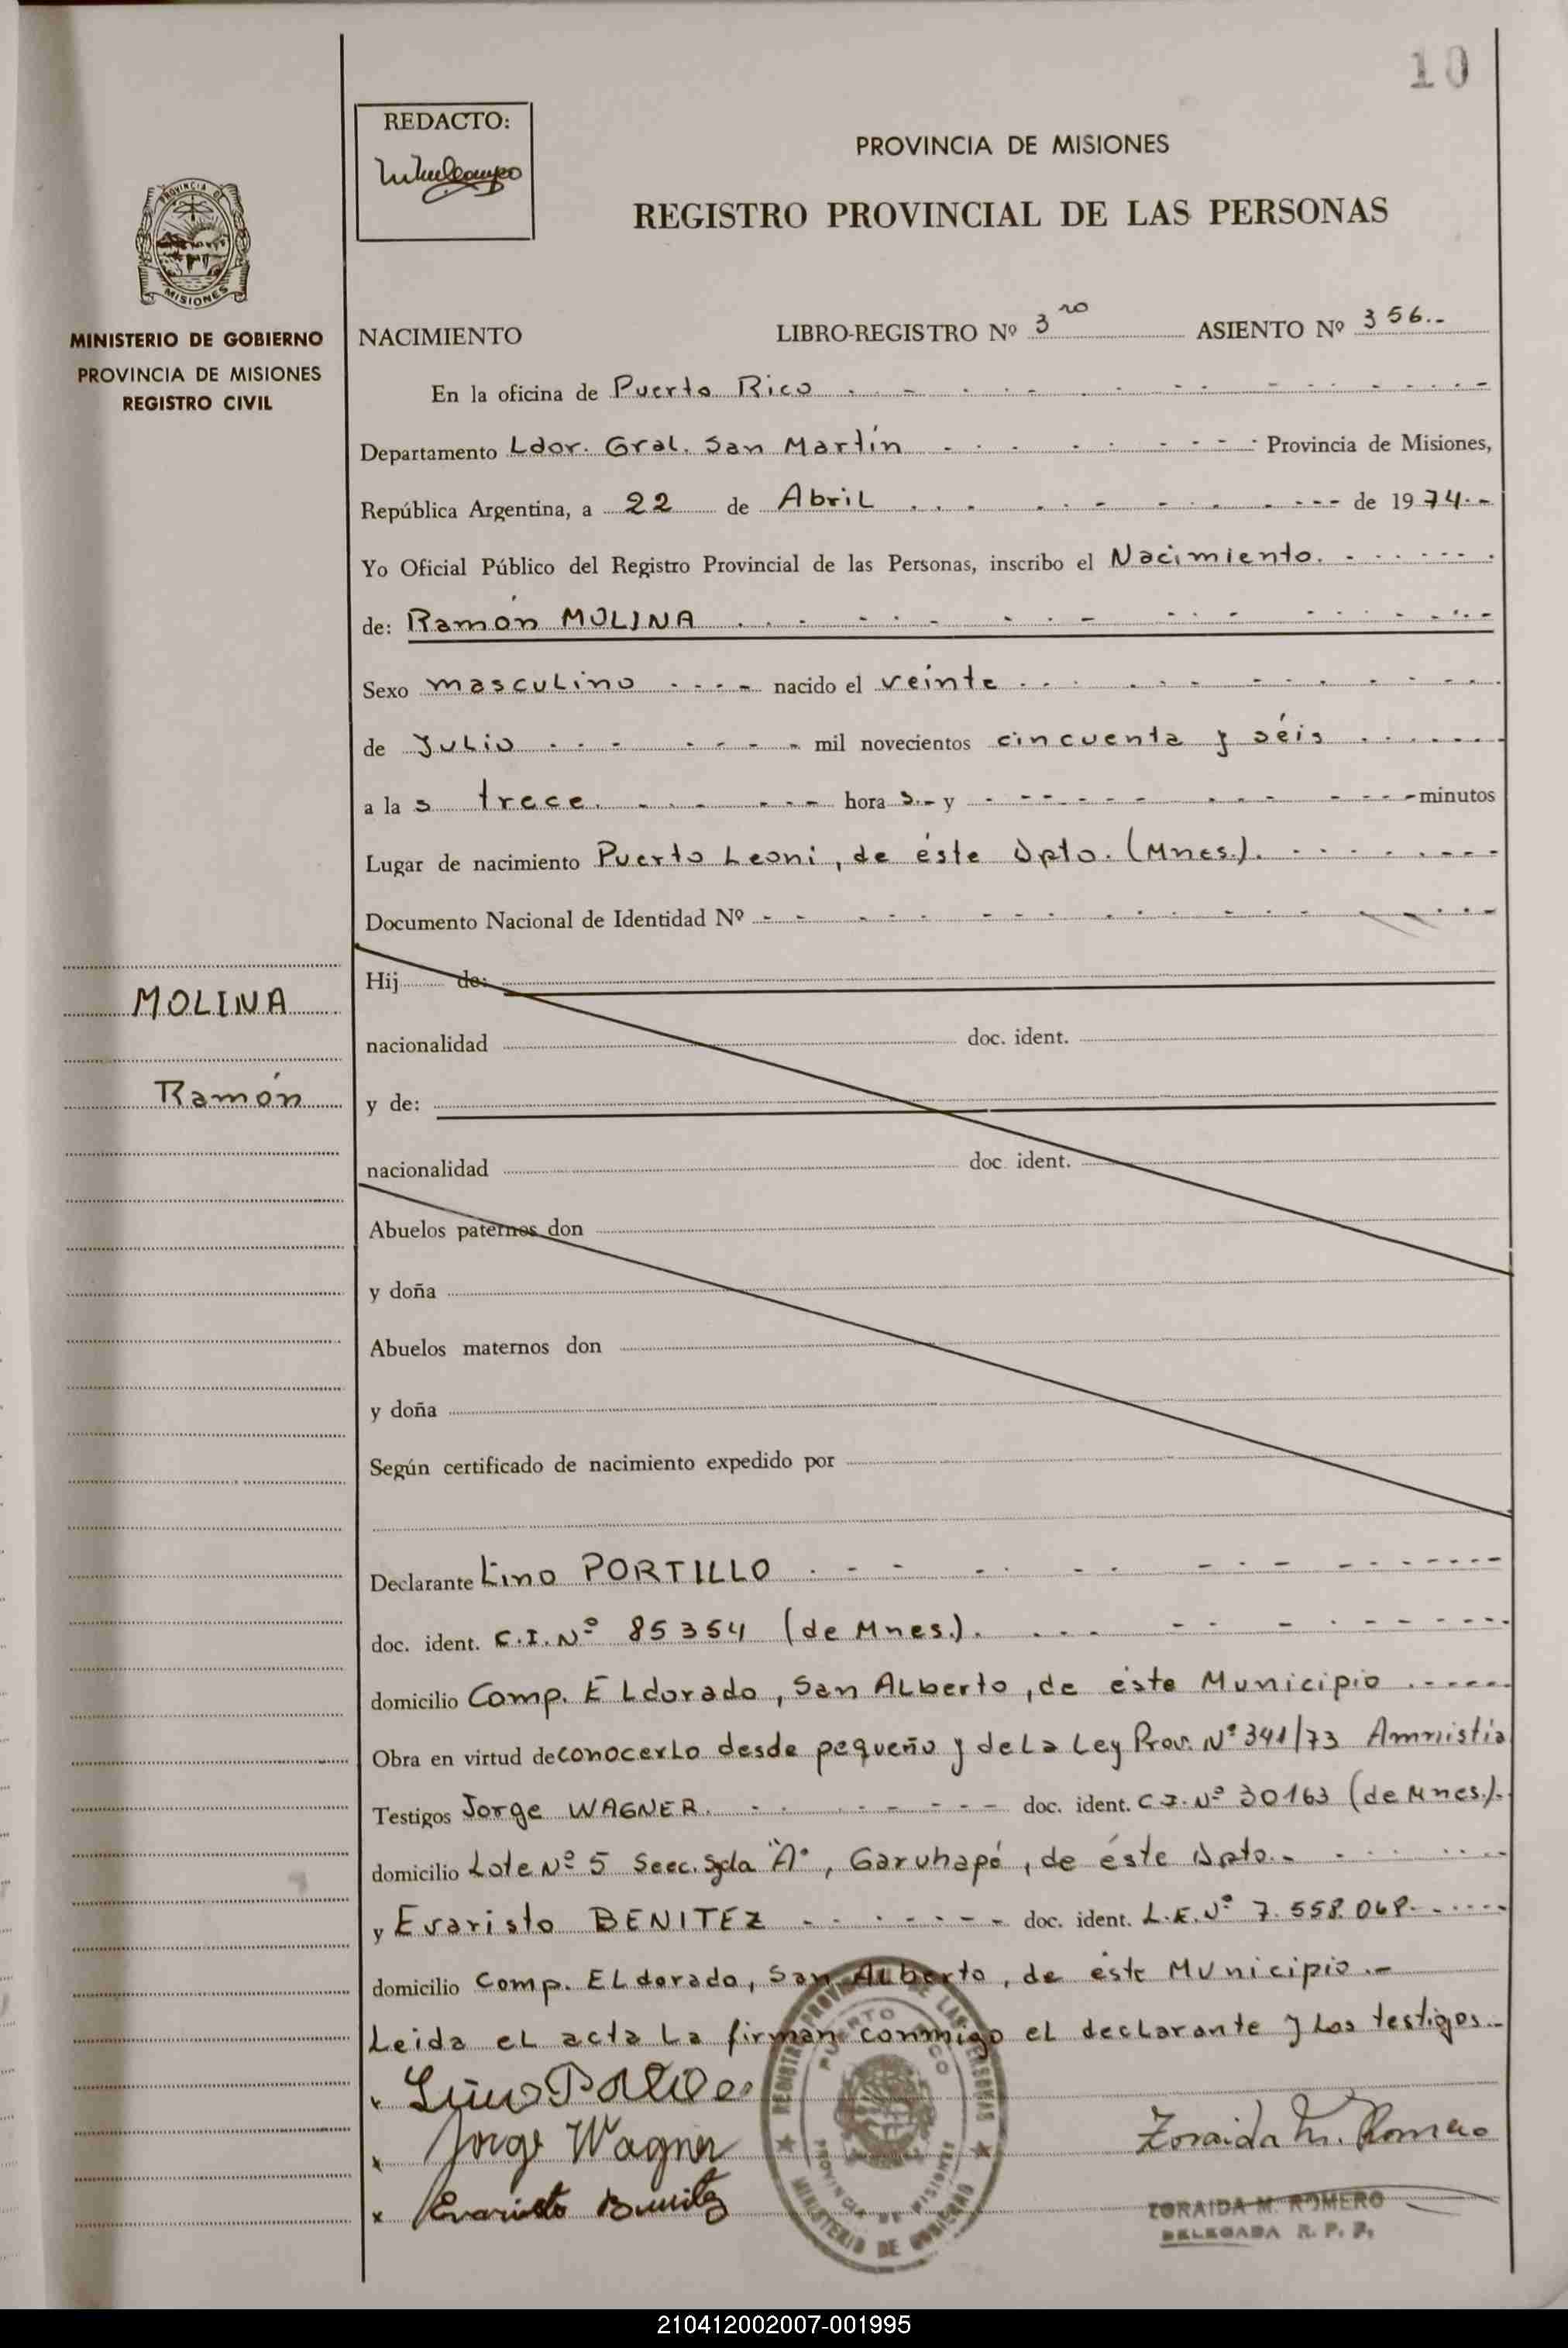 10
REDACTO:
PROVINCIA DE MISIONES
REGISTRO PROVINCIAL DE LAS PERSONAS
PROVINCIA DE
MISIONES
MINISTERIO DE GOBIERNO
PROVINCIA DE MISIONES
REGISTRO CIVIL
NACIMIENTO LIBRO-REGISTRO Nº 3ro ASIENTO Nº 356.-
En la oficina de Puerto Rico
Departamento Ldor. Gral. San Martín Provincia de Misiones,
República Argentina, a 22 de Abril de 1974.-
Yo Oficial Público del Registro Provincial de las Personas, inscribo el Nacimiento.
de: Ramón MOLINA
Sexo masculino nacido el veinte
de Julio mil novecientos cincuenta y séis
a la s trece. hora s.- y minutos
Lugar de nacimiento Puerto Leoni, de éste Dpto. (Mnes.).
Documento Nacional de Identidad Nº
Hij de:
MOLINA
nacionalidad doc. ident.
Ramón
y de:
nacionalidad doc. ident.
Abuelos paternos don
y doña
Abuelos maternos don
y doña
Según certificado de nacimiento expedido por
Declarante Lino PORTILLO
doc. ident. C.I. Nº 85354 (de Mnes.).
domicilio Comp. ELdorado, San ALberto, de éste Municipio
Obra en virtud de conocerlo desde pequeño y de La Ley Prov. Nº 341/73 Amnistía
Testigos Jorge WAGNER. doc. ident. C.I. Nº 30163 (de Mnes.).
domicilio Lote Nº 5 Secc. Sgda "A", Garuhapé, de éste Dpto.-
y Evaristo BENITEZ doc. ident. L.E. Nº 7.558.068.-
domicilio Comp. ELdorado, San ALberto, de éste Municipio.-
Leida el acta La firman conmigo el declarante y Los testigos.-
x Lino Portillo
x Jorge Wagner
x Evaristo Benitez
Zoraida M. Romero
ZORAIDA M. ROMERO
DELEGADA R. P. P.
REGISTRO PROVINCIAL DE LAS PERSONAS
PUERTO RICO
PROVINCIA DE MISIONES
MINISTERIO DE GOBIERNO
210412002007-001995